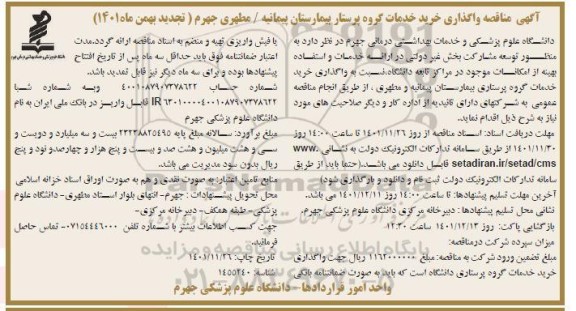 آگهی مناقصه واگذاری خرید خدمات گروه پرستار بیمارستان پیمانیه / مطهری جهرم ( تجدید بهمن ماه۱۴۰۱)
دانشگاه علوم پزشکی و خدمات بهداشتی درمانی جهرم در نظر دارد به
منظور توسعه مشارکت بخش غیر دولتی در ارائه خدمات و استفاده
بهینه از امکانات موجود در مراکز تابعه دانشگاه،نسبت به واگذاری خرید
خدمات گروه پرستاری بیمارستان پیمانیه و مطهری ، از طریق انجام مناقصه
عمومی به شرکتهای دارای تائیدیه از اداره کار و دیگر صلاحیت های مورد
نیاز به شرح ذیل اقدام نماید.
مهلت دریافت اسناد: اسناد مناقصه از روز ۱۴۰۱/۱۱/۲۶ تا ساعت ۱۴:۰۰ روز
۱۴۰۱/۱۱/۳۰ از طریق سامانه تدارکات الکترونیک دولت به نشانی www.
setadiran.ir/setad/cms قابل دانلود می باشد.(حتما باید از طریق
سامانه تدارکات الکترونیک دولت ثبت نام و دانلود و بارگذاری شود)
آخرین مهلت تسلیم پیشنهادها: تا ساعت ۱۴:۰۰ روز ۱۴۰۱/۱۲/۱۱ می باشد.
نشانی محل تسلیم پیشنهادها : دبیرخانه مرکزی دانشگاه علوم پزشکی جهرم.
بازگشایی پاکت: روز ۱۴۰۱/۱۲/۱۳ ساعت ۱۲:۳۰
میزان سپرده شرکت درمناقصه:
مبلغ تضمین ورود شرکت به مناقصه: ۱۱۶۲۰۰۰۰۰۰ ریال جهت واگذاری
خرید خدمات گروه پرستاری دانشگاه است که باید به صورت ضمانتنامه بانکی
یا فیش واریزی تهیه و منضم به اسناد مناقصه ارائه گردد.مدت
اعتبار ضمانتنامه فوق باید حداقل سه ماه پس از تاریخ افتتاح
پیشنهادها بوده و برای سه ماه دیگر نیز قابل تمدید باشد.
شماره حساب ۴۰۰۱۰۸۷۹۰۷۳۷۸۶۲۲ وبه شماره شبا
IR ۱۳۰۱۰۰۰۰۴۰۰۱۰۸۷۹۰۷۳۷۸۶۲۲ قابل واریز در بانک ملی ایران به نام
دانشگاه علوم پزشکی جهرم
مبلغ برآورد: سالانه مبلغ پایه ۲۳۲۳۸۸۲۵۴۹۵ بیست و سه میلیارد و دویست و
سی و هشت میلیون و هشت صد و بیست و پنج هزار و چهارصدو نود و پنج
ریال بدون سود مدیریت می باشد.
منابع تامین اعتبار: به صورت نقدی و هم به صورت اوراق اسناد خزانه اسلامی
محل تحویل پیشنهادات: جهرم- انتهای بلوار استاد مطهری- دانشگاه علوم
پزشکی- طبقه همکف- دبیرخانه مرکزی-
جهت کسب اطلاعات بیشتر با شماره تلفن ۰۷۱۵۴۴۴۶۰۰۰ تماس حاصل
فرمائید.
تاریخ چاپ: ۱۴۰۱/۱۱/۲۶
شناسه: ۱۴۵۵۲۴۰
واحد امور قراردادها - دانشگاه علوم پزشکی جهرم
پایگاه اطلاع رسانی مناقصه و مزایده